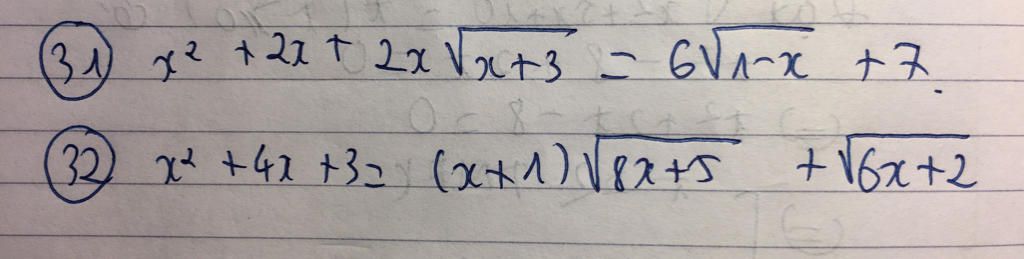 31 x² + 2x + 2x√(x+3) = 6√(1-x) + 7.
32 x² + 4x + 3 = (x+1)√(8x+5) + √(6x+2)